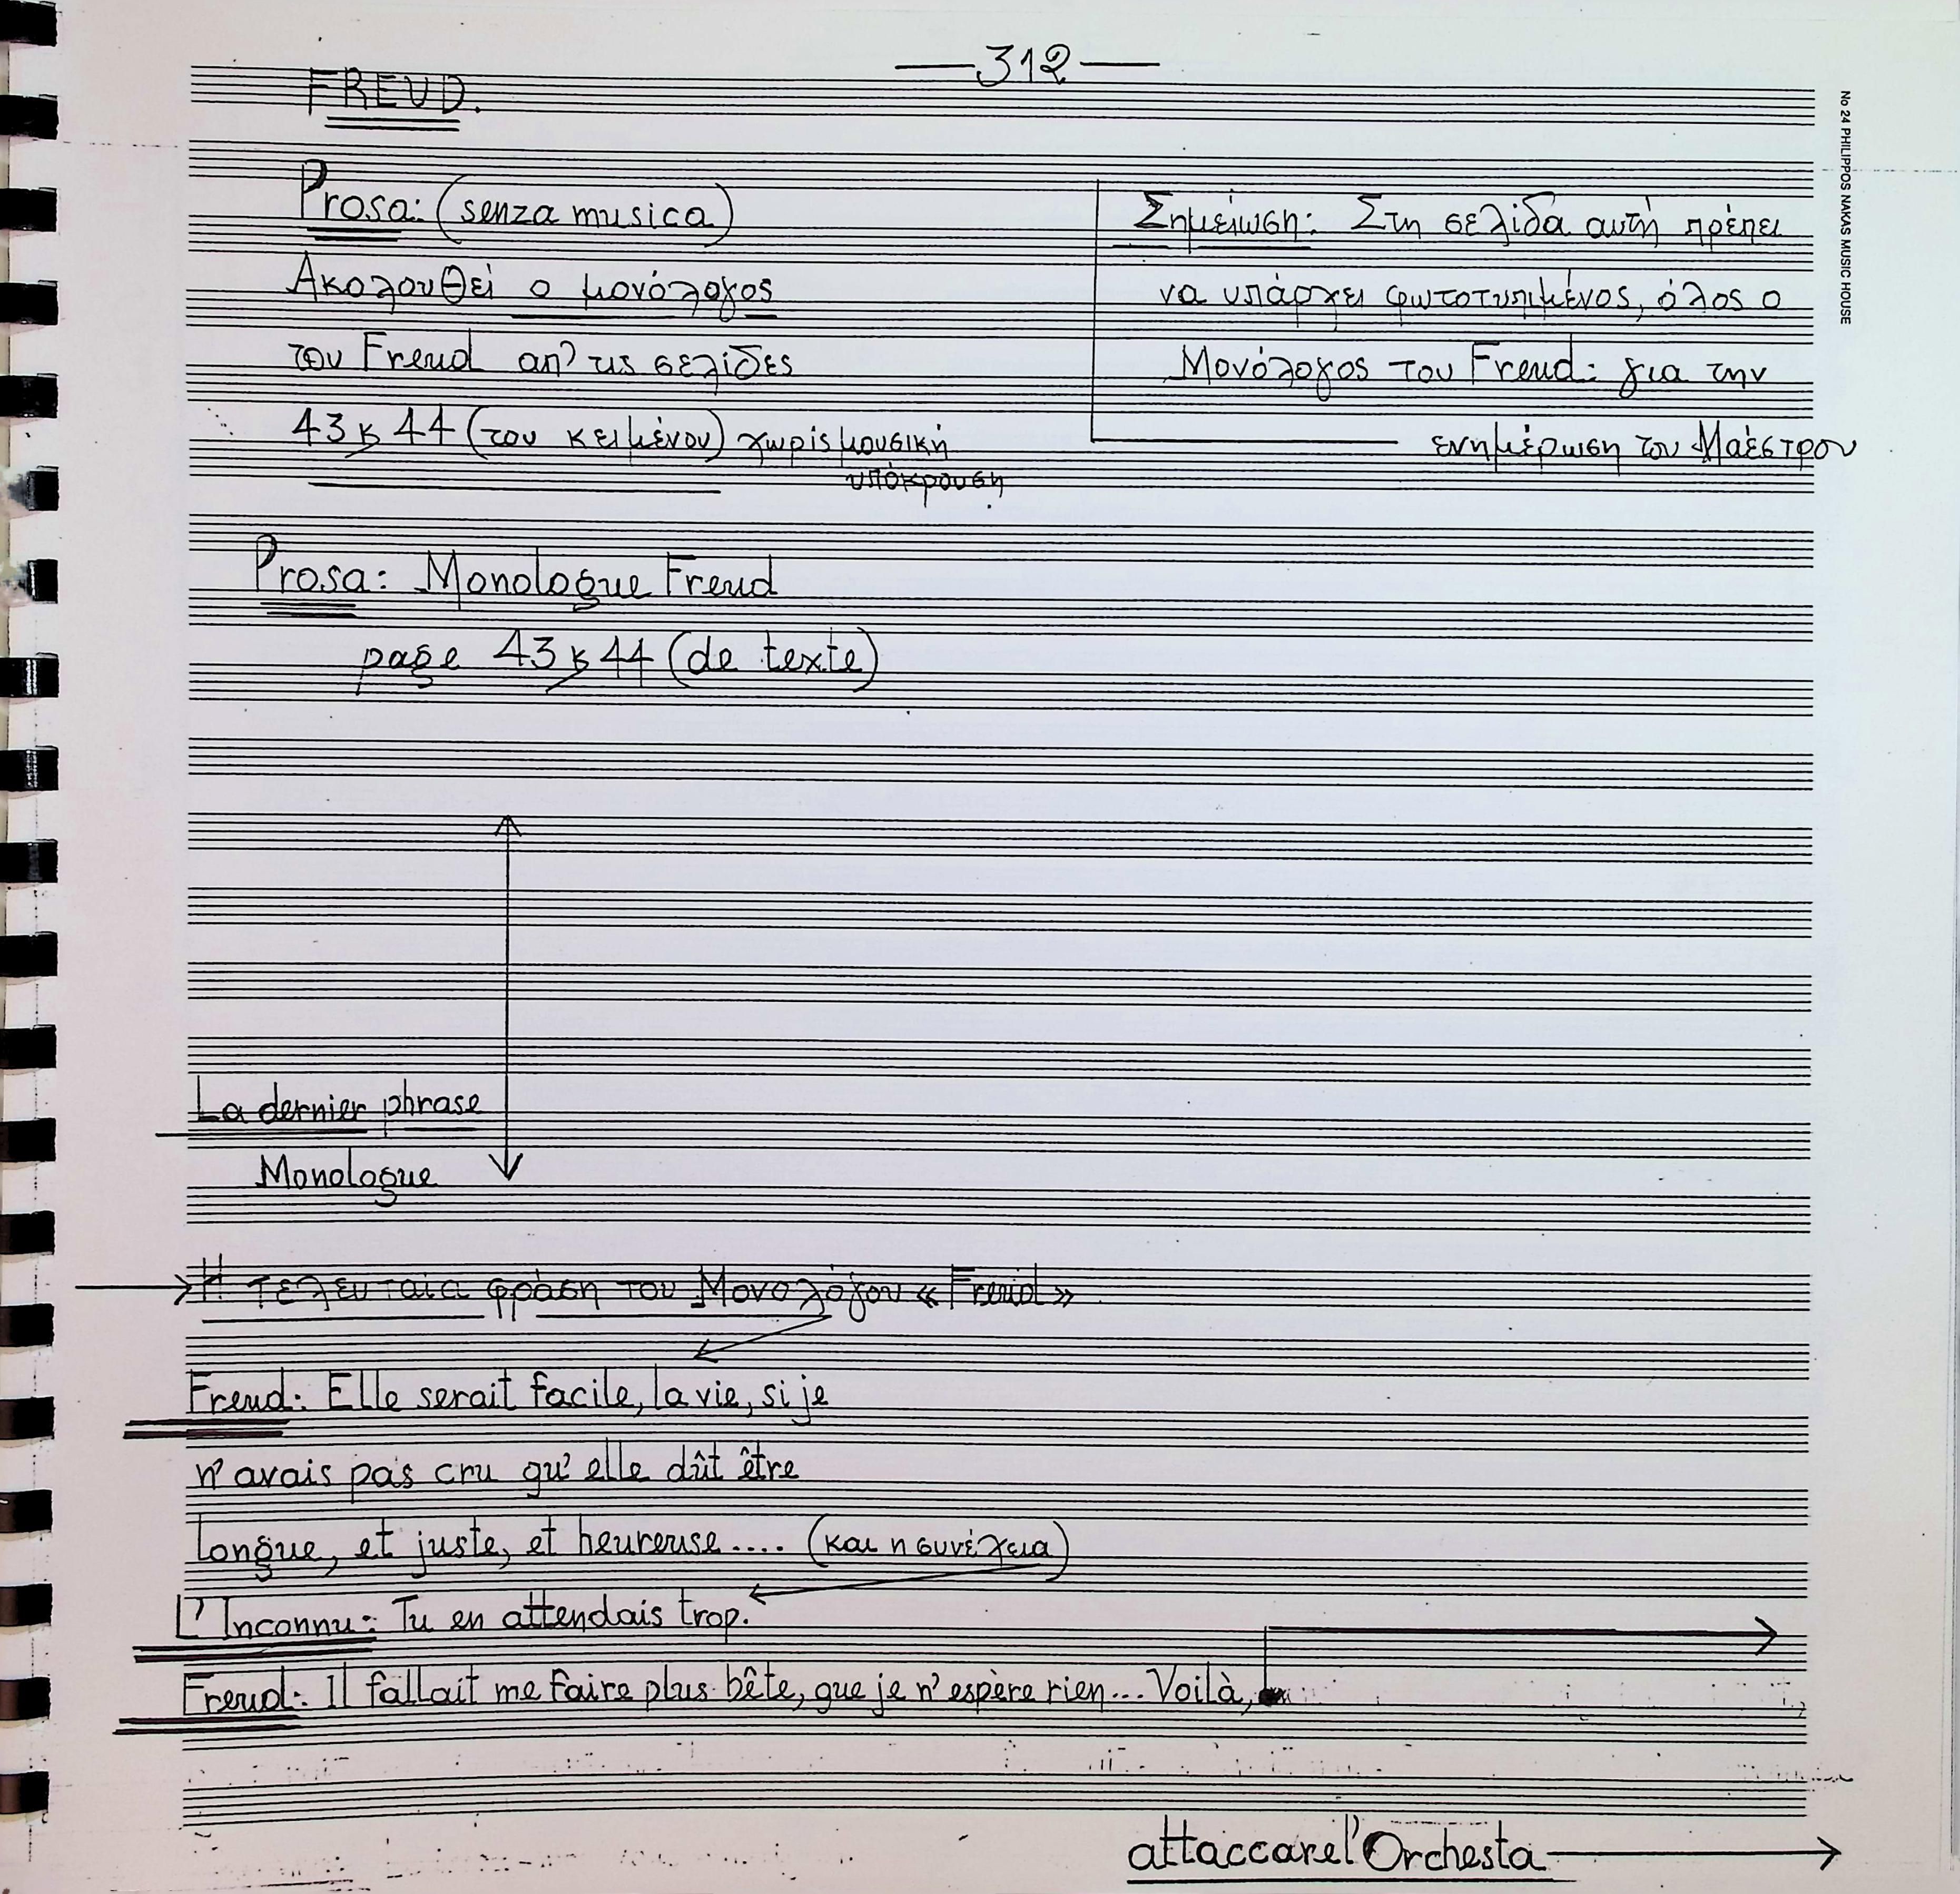 — 312 —
FREUD.
Prosa: (senza musica)
Ακολουθεί ο μονόλογος
του Freud απ' τις σελίδες
43 ϗ 44 (του κειμένου) χωρίς μουσική
υπόκρουση
Σημείωση: Στη σελίδα αυτή πρέπει
να υπάρχει φωτοτυπιμένος, όλος ο
Μονόλογος του Freud: για την
ενημέρωση του Μαέστρου
No 24 PHILIPPOS NAKAS MUSIC HOUSE
Prosa: Monologue Freud
page 43 ϗ 44 (de texte)
La dernier phrase
Monologue
Η τελευταία φράση του Μονολόγου « Freud »
Freud: Elle serait facile, la vie, si je
n'avais pas cru qu'elle dût être
longue, et juste, et heureuse.... (και η συνέχεια)
L'Inconnu: Tu en attendais trop.
Freud: Il fallait me faire plus bête, que je n'espère rien... Voilà,
attaccare l'Orchesta